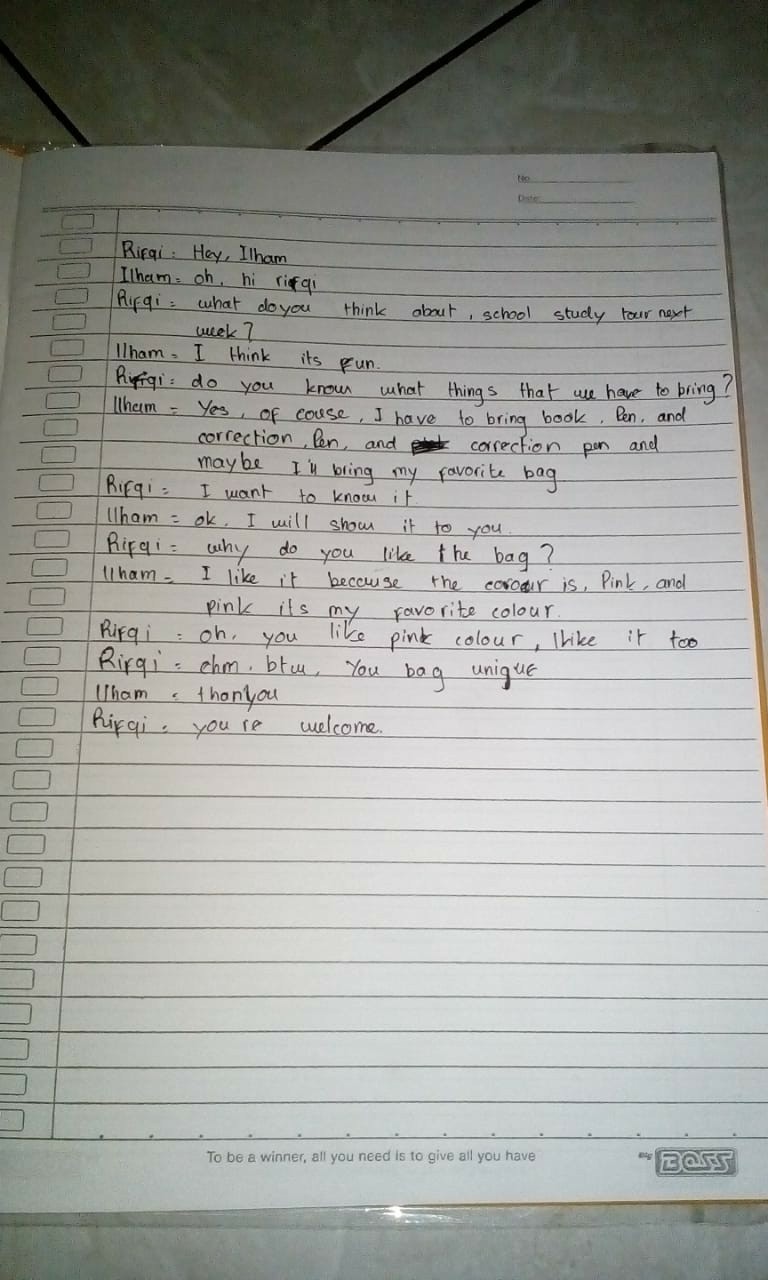 No
Date
Rifqi : Hey, Ilham
Ilham = oh, hi rifqi
Rifqi = what do you think about, school study tour next
week?
Ilham = I think its fun.
Rifqi = do you know what things that we have to bring?
Ilham = Yes, of couse, I have to bring book, Pen, and
correction, Pen, and correction pen and
maybe I'll bring my favorite bag
Rifqi = I want to know it.
Ilham = ok. I will show it to you.
Rifqi = why do you like the bag?
Ilham = I like it because the is, Pink, and
pink its my favorite colour.
Rifqi = oh, you like pink colour, I like it too
Rifqi = ehm. btw, You bag unique
Ilham = thankyou
Rifqi = you're welcome.
To be a winner, all you need is to give all you have
Big BOSS